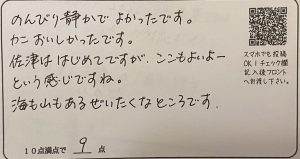 のんびり静かで よかったです。
カニおいしかったです。
佐津は はじめてですが、ここもよいよー
という感じですね。
海も山もあるぜいたくなところです。
10点満点で 9 点
スマホでも投稿
OK!チェック欄
記入後フロント
へお渡し下さい。